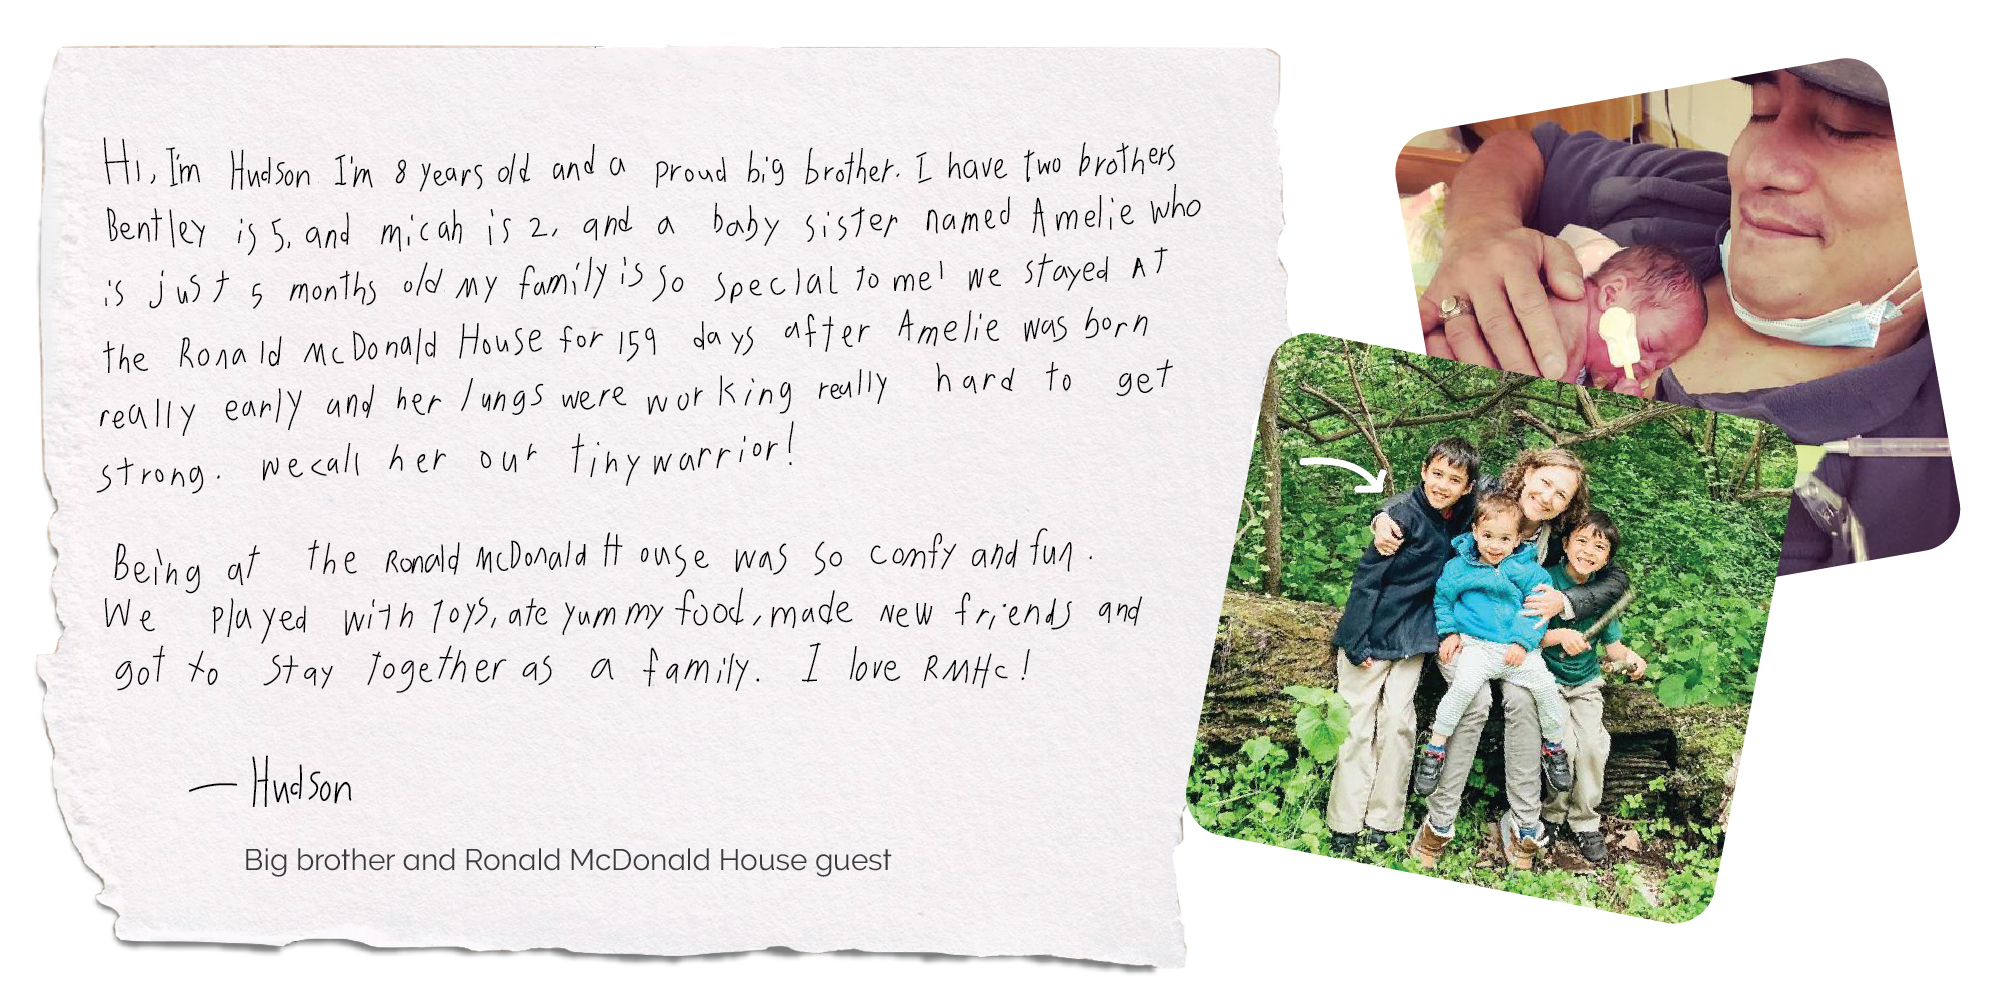 Hi, I'm Hudson I'm 8 years old and a proud big brother. I have two brothers
Bentley is 5, and micah is 2, and a baby sister named Amelie who
is just 5 months old my family is so special to me! we stayed AT
the Ronald McDonald House for 159 days after Amelie was born
really early and her lungs were working really hard to get
strong. we call her our tiny warrior!
Being at the Ronald McDonald House was so comfy and fun.
We played with Toys, ate yummy food, made new friends and
got to stay together as a family. I love RMHc!
— Hudson
Big brother and Ronald McDonald House guest